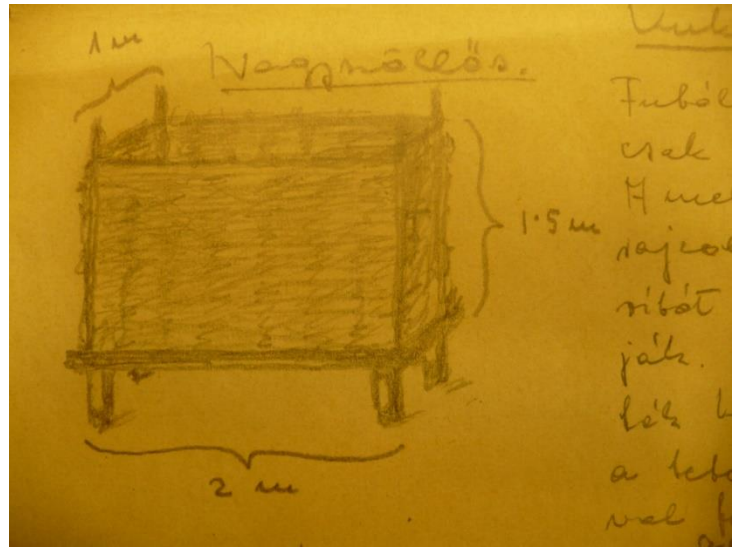 1 m
Nagyszőllős.
1·5 m
2 m
Fuból
csak
A me
rajzol
ribát
ják.
lák
a tete
val